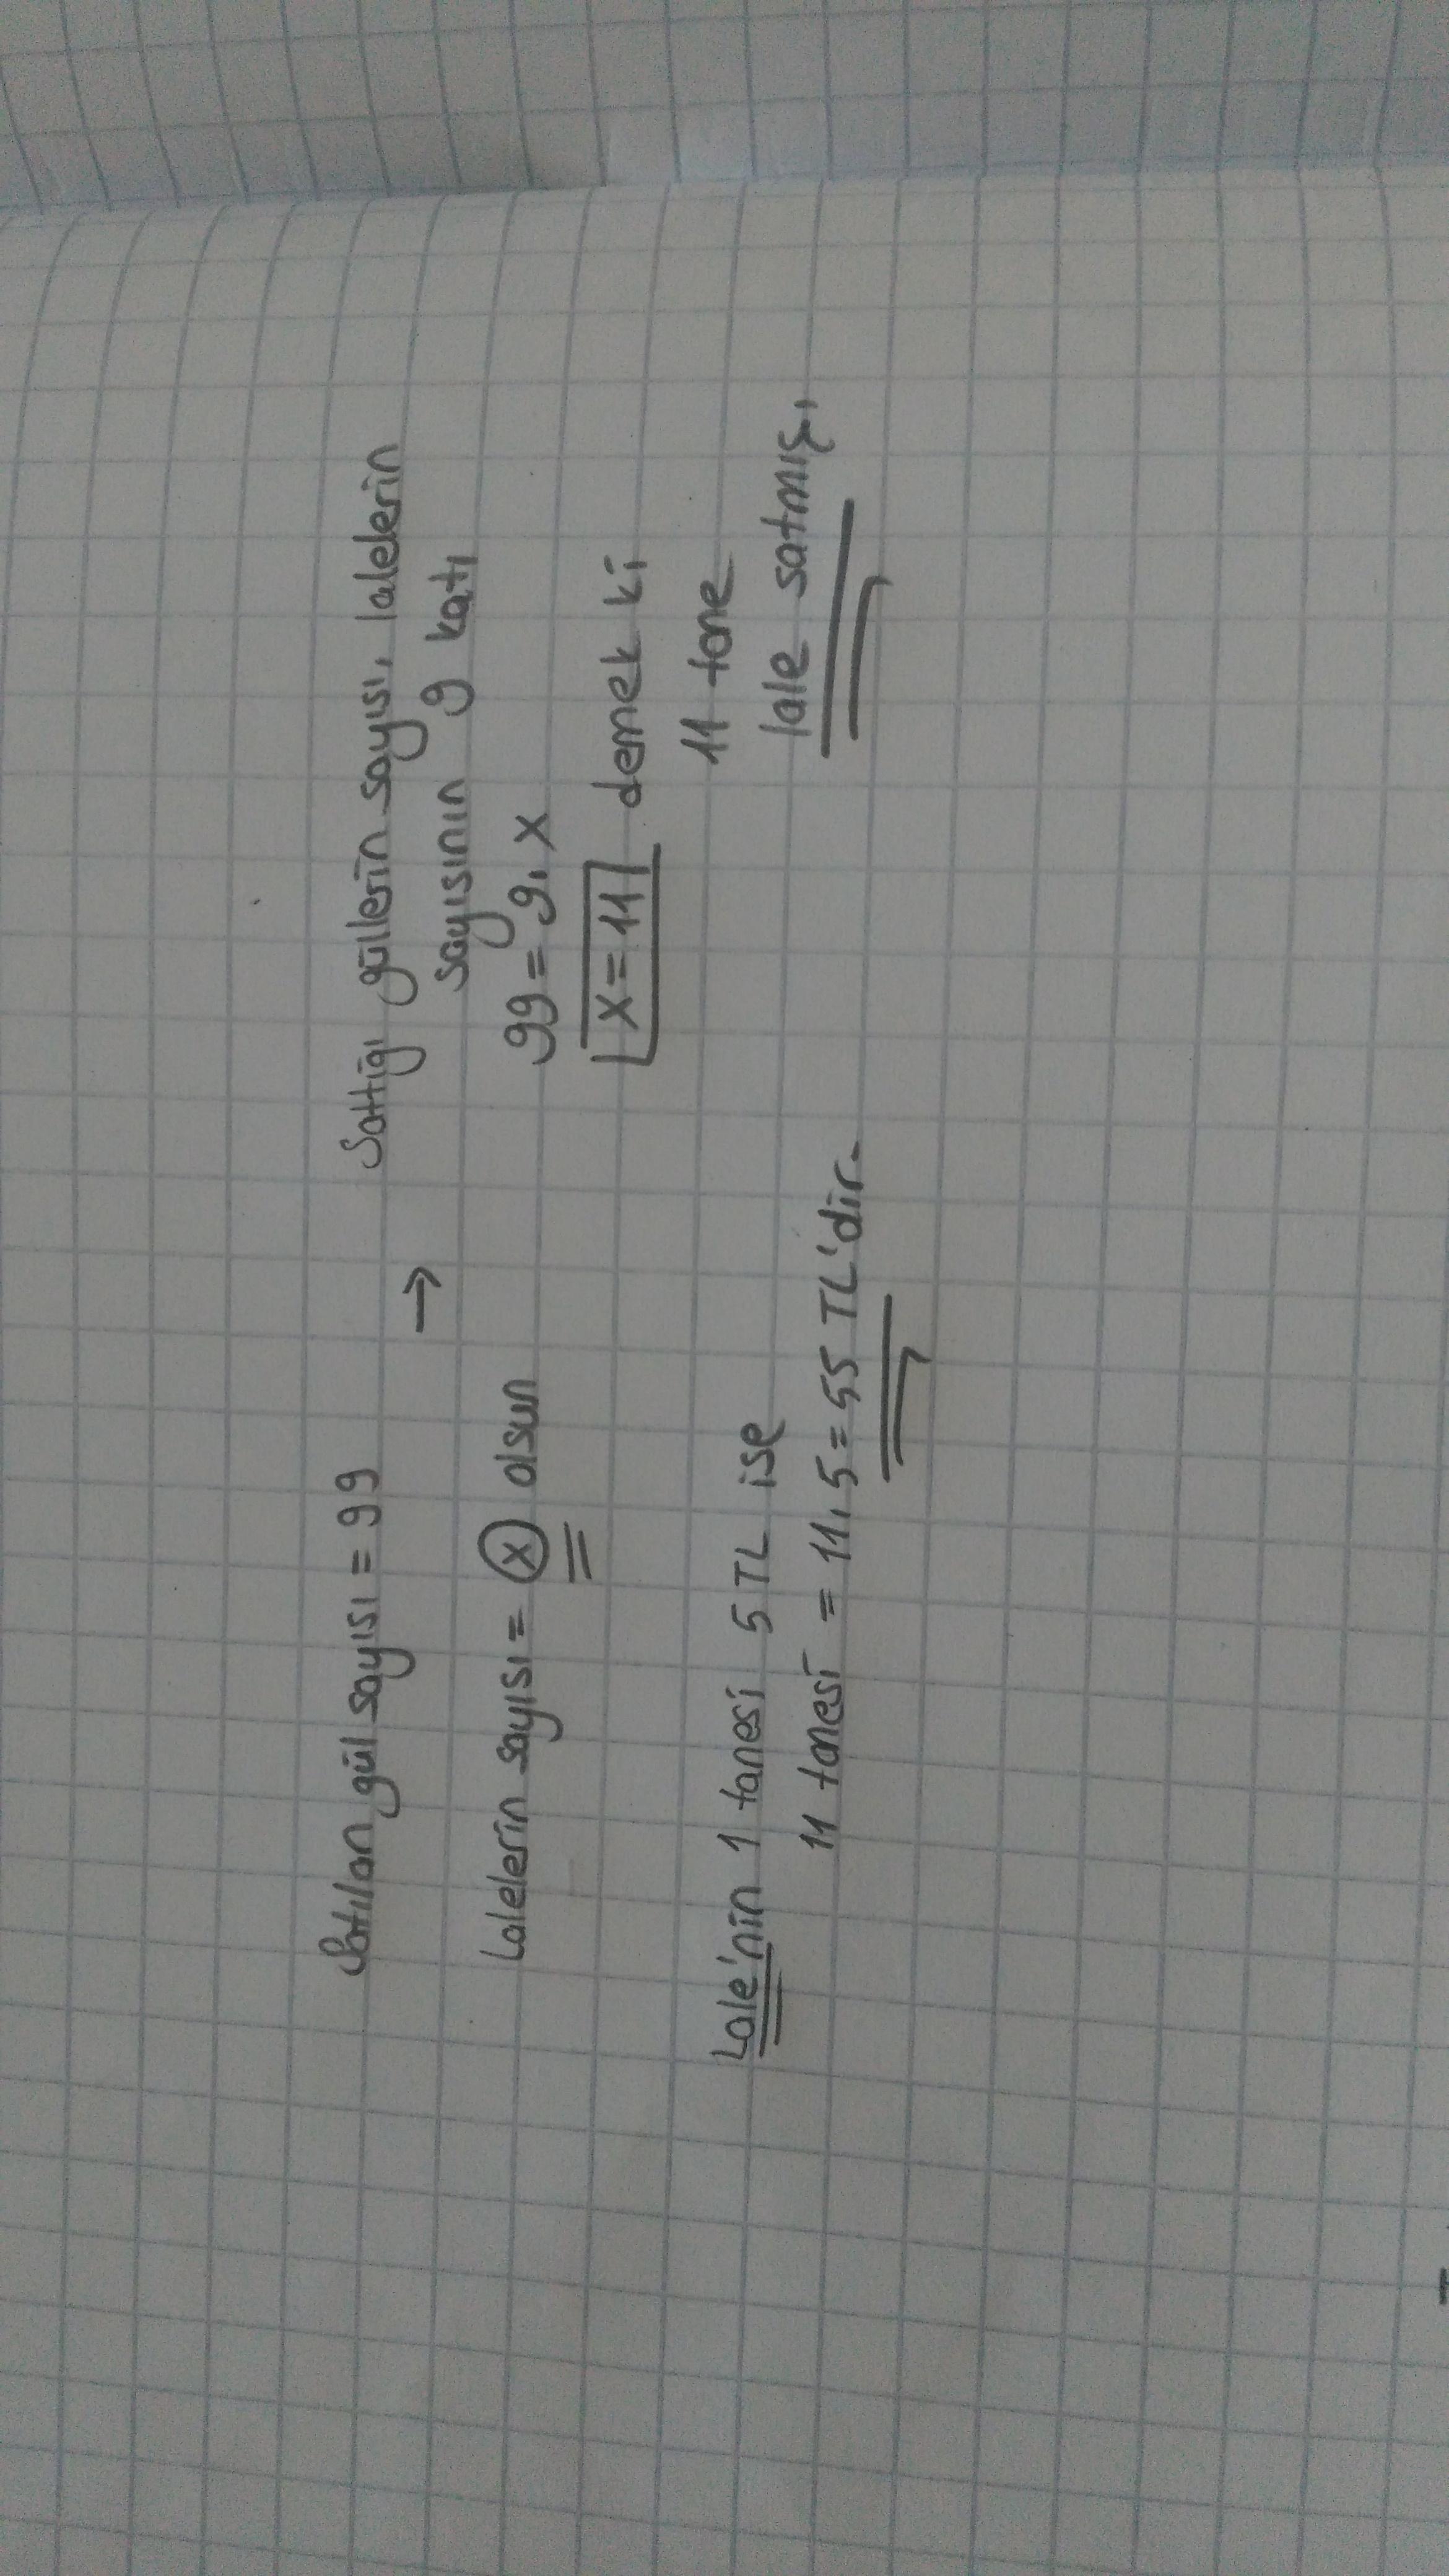 Satılan gül sayısı = 99
→
Lalelerin sayısı = x olsun
Sattığı güllerin sayısı, lalelerin
sayısının 9 katı
99 = 9.x
x = 11 demek ki
11 tane
lale satmış.
Lale'nin 1 tanesi 5 TL ise
11 tanesi = 11.5 = 55 TL'dir.